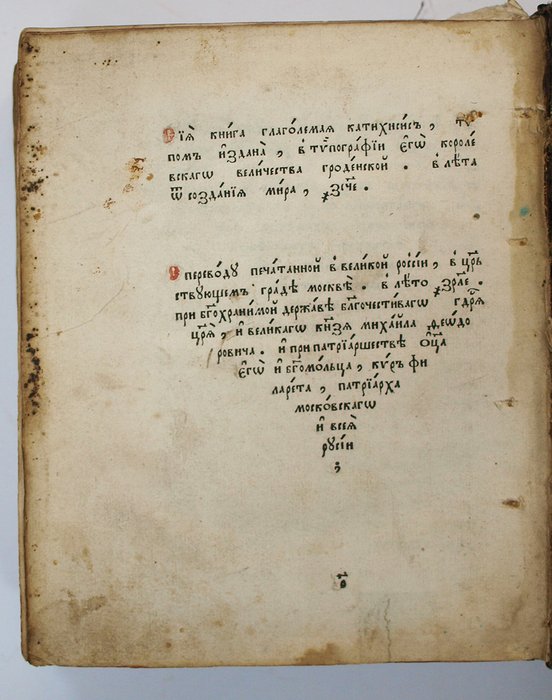 Сїѧ̀ книга глаго́лемая катихисисъ, тѵ
помъ и҆́здана̀, в̾тѵпогра́фїи є҆гѡ̀ короле́
вскагѡ вели́чества гро́денской. в̾лѣ́та
ѿ созда́нїѧ ми́ра, ҂зсч҃е.
С переводу печа́танной в̾вели́кой росїи, в̾цр҇ь
ствующемъ гра́дѣ москвѣ̀. в̾лѣ́то ҂зрл҃е.
при бг҃охрани́мой держа́вѣ бл҃гочести́вагѡ гдр҇ѧ
цр҃ѧ̀, и҆ вели́кагѡ кнѕ҃ѧ миха́йла ѳеѡ́до
ровича. и҆ при патрїа́ршествѣ ѻ҆ц҃а
є҆гѡ̀ и҆ бг҃омо́льца, кѵ́ръ фи
ларе́та, патрїа́рха
моско́вскагѡ
и҆ всеѧ̀
русі́и
;